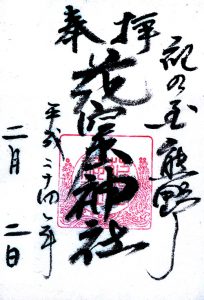 紀の 熊野
奉拝
花窟神社
平成二十四年
二月二日